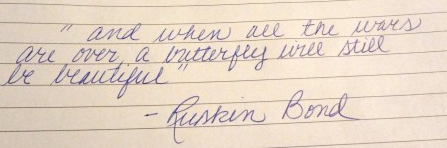 " and when all the wars
are over, a butterfly will still
be beautiful"
- Ruskin Bond